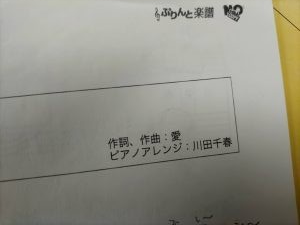 ぷりんと楽譜
作詞、作曲：愛
ピアノアレンジ：川田千春